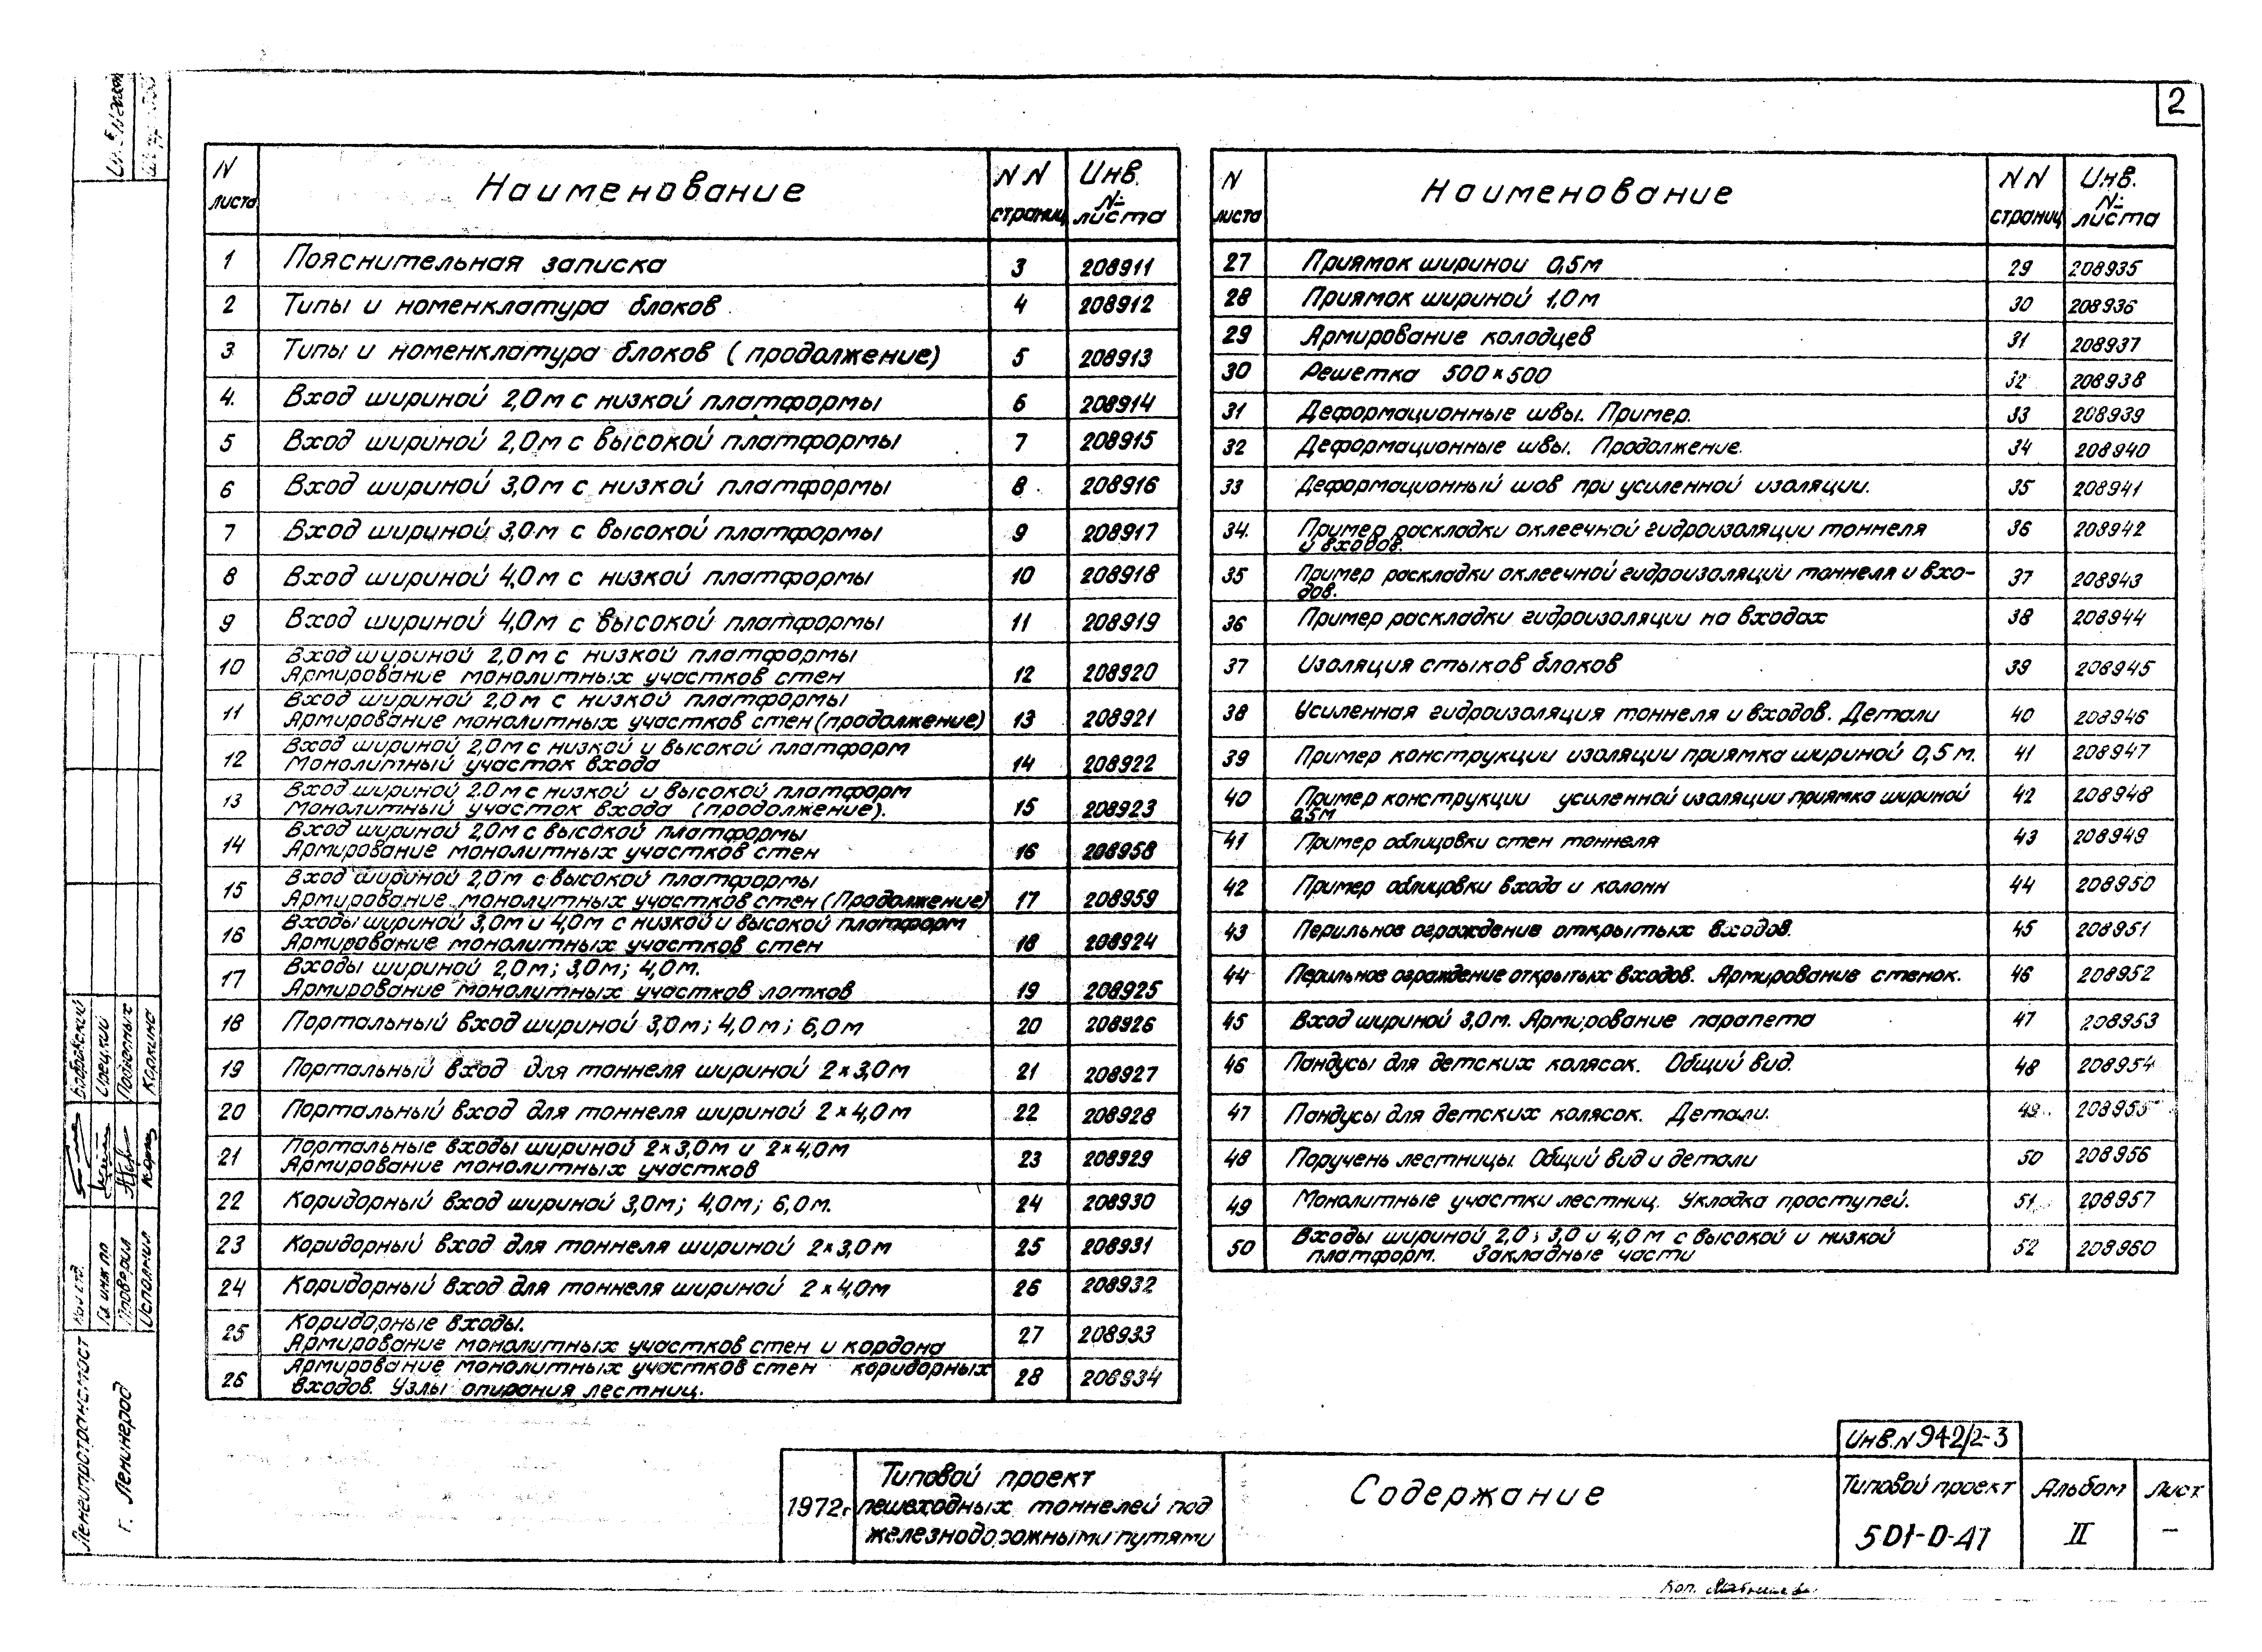 2
N листа Наименование NN страниц Инв. № листа
1 Пояснительная записка 3 208911
2 Типы и номенклатура блоков 4 208912
3 Типы и номенклатура блоков (продолжение) 5 208913
4. Вход шириной 2,0м с низкой платформы 6 208914
5 Вход шириной 2,0м с высокой платформы 7 208915
6 Вход шириной 3,0м с низкой платформы 8 208916
7 Вход шириной 3,0м с высокой платформы 9 208917
8 Вход шириной 4,0м с низкой платформы 10 208918
9 Вход шириной 4,0м с высокой платформы 11 208919
10 Вход шириной 2,0м с низкой платформы
Армирование монолитных участков стен 12 208920
11 Вход шириной 2,0м с низкой платформы
Армирование монолитных участков стен (продолжение) 13 208921
12 Вход шириной 2,0м с низкой и высокой платформ
Монолитный участок входа 14 208922
13 Вход шириной 2.0м с низкой и высокой платформ
Монолитный участок входа (продолжение). 15 208923
14 Вход шириной 2,0м с высокой платформы
Армирование монолитных участков стен 16 208958
15 Вход шириной 2,0м с высокой платформы
Армирование монолитных участков стен (Продолжение) 17 208959
16 Входы шириной 3,0м и 4,0м с низкой и высокой платформ
Армирование монолитных участков стен 18 208924
17 Входы шириной 2,0м; 3,0м; 4,0м.
Армирование монолитных участков лотков 19 208925
18 Портальный вход шириной 3,0м; 4,0м; 6,0м 20 208926
19 Портальный вход для тоннеля шириной 2×3,0м 21 208927
20 Портальный вход для тоннеля шириной 2×4,0м 22 208928
21 Портальные входы шириной 2×3,0м и 2×4,0м
Армирование монолитных участков 23 208929
22 Коридорный вход шириной 3,0м; 4,0м; 6,0м. 24 208930
23 Коридорный вход для тоннеля шириной 2×3,0м 25 208931
24 Коридорный вход для тоннеля шириной 2×4,0м 26 208932
25 Коридорные входы.
Армирование монолитных участков стен и кордона 27 208933
26 Армирование монолитных участков стен коридорных
входов. Узлы опирания лестниц. 28 208934
N листа Наименование NN страниц Инв. № листа
27 Приямок шириной 0,5м 29 208935
28 Приямок шириной 1,0м 30 208936
29 Армирование колодцев 31 208937
30 Решетка 500×500 32 208938
31 Деформационные швы. Пример. 33 208939
32 Деформационные швы. Продолжение. 34 208940
33 Деформационный шов при усиленной изоляции. 35 208941
34. Пример раскладки оклеечной гидроизоляции тоннеля
и входов. 36 208942
35 Пример раскладки оклеечной гидроизоляции тоннеля и вхо-
дов. 37 208943
36 Пример раскладки гидроизоляции на входах 38 208944
37 Изоляция стыков блоков 39 208945
38 Усиленная гидроизоляция тоннеля и входов. Детали 40 208946
39 Пример конструкции изоляции приямка шириной 0,5м. 41 208947
40 Пример конструкции усиленной изоляции приямка шириной
0,5м 42 208948
41 Пример облицовки стен тоннеля 43 208949
42 Пример облицовки входа и колонн 44 208950
43 Перильное ограждение открытых входов. 45 208951
44 Перильное ограждение открытых входов. Армирование стенок. 46 208952
45 Вход шириной 3,0м. Армирование парапета 47 208953
46 Пандусы для детских колясок. Общий вид. 48 208954
47 Пандусы для детских колясок. Детали. 49 208955
48 Поручень лестницы. Общий вид и детали 50 208956
49 Монолитные участки лестниц. Укладка проступей. 51 208957
50 Входы шириной 2,0; 3,0 и 4,0м с высокой и низкой
платформ. Закладные части 52 208960
Ленгипротрансмост
г. Ленинград
Гл. инж пр
Проверил
Исполнил
Корокина
Инв.N 942/2-3
1972г
Типовой проект
пешеходных тоннелей под
железнодорожными путями
Содержание
Типовой проект
501-0-41
Альбом
II
Лист
–
Коп.